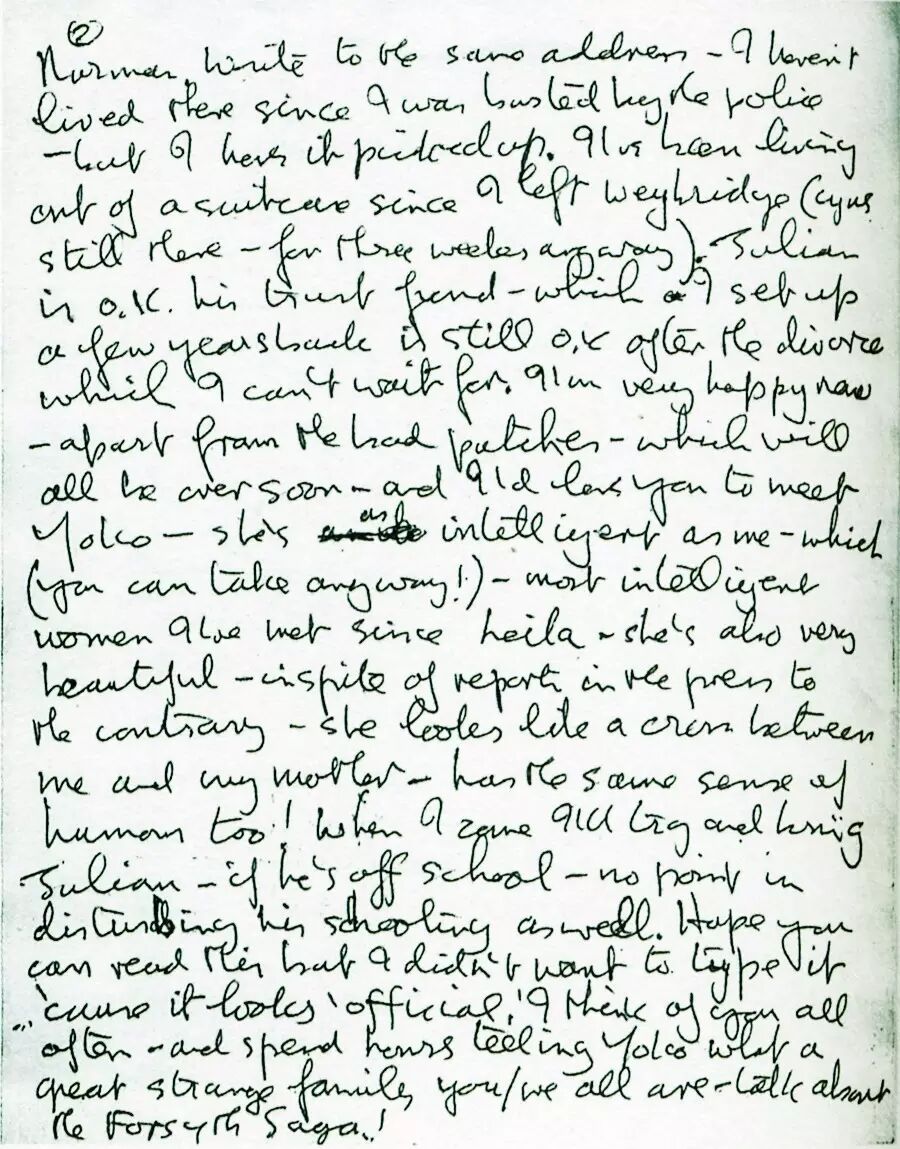 (2)
Norman, write to the same address - I haven't
lived there since I was busted by the police
- but I have it picked up. I've been living
out of a suitcase since I left weybridge (cyns
still there - for three weeks anyway). Julian
is o.k. his trust fund - which I set up
a few years back is still o.k after the divorce
which I can't wait for. I'm very happy now
- apart from the bad patches - which will
all be over soon - and I'd love you to meet
Yoko - she's as intelligent as me - which
(you can take anyway!) - most intelligent
women I've met since leila - she's also very
beautiful - inspite of reports in the press to
the contrary - she looks like a cross between
me and my mother - has the same sense of
humour too! When I come I'll try and bring
Julian - if he's off school - no point in
disturbing his schooling aswell. Hope you
can read this but I didn't want to type it
'cause it looks 'official'! I think of you all
often - and spend hours telling Yoko what a
great strange family you/we all are - talk about
the Forsyth Saga!